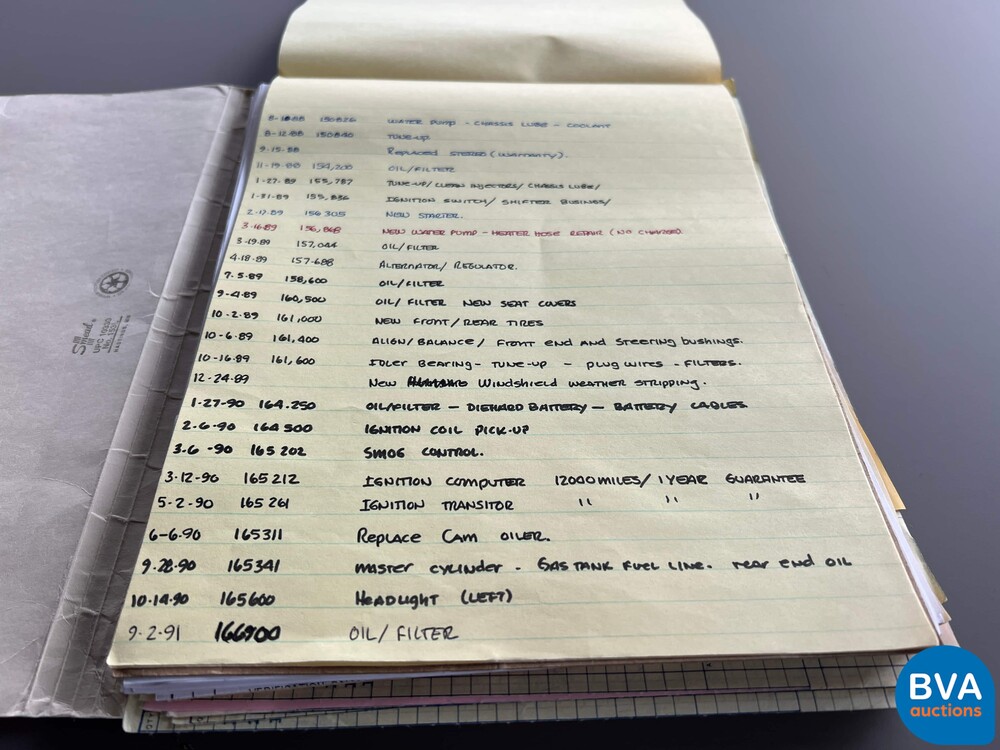 8-18-88 150826 WATER PUMP - CHASSIS LUBE - COOLANT
8-12-88 150840 TUNE-UP
9-15-88 REPLACED STEREO (WARRANTY).
11-19-88 154,200 OIL/FILTER
1-27-89 155,787 TUNE-UP/CLEAN INJECTORS/CHASSIS LUBE/
1-31-89 155,836 IGNITION SWITCH/SHIFTER BUSHING/
2-17-89 156305 NEW STARTER.
3-16-89 156,868 NEW WATER PUMP - HEATER HOSE REPAIR (NO CHARGE).
3-19-89 157,044 OIL/FILTER
4-18-89 157.688 ALTERNATOR/REGULATOR.
7.5.89 158,600 OIL/FILTER
9-4-89 160,500 OIL/FILTER NEW SEAT COVERS
10-2-89 161,000 NEW FRONT/REAR TIRES
10-6-89 161,400 ALIGN/BALANCE/ FRONT END AND STEERING BUSHINGS.
10-16-89 161,600 IDLER BEARING - TUNE-UP - PLUG WIRES - FILTERS.
12-24-89 NEW WINDSHIELD WEATHER STRIPPING.
1-27-90 164.250 OIL/FILTER - DIEHARD BATTERY - BATTERY CABLES
2-6-90 164500 IGNITION COIL PICK-UP
3.6-90 165202 SMOG CONTROL.
3-12-90 165212 IGNITION COMPUTER 12000 MILES/ 1 YEAR GUARANTEE
5-2-90 165261 IGNITION TRANSITOR " " "
6-6-90 165311 REPLACE CAM OILER.
9-28-90 165341 MASTER CYLINDER - GAS TANK FUEL LINE. REAR END OIL
10-14-90 165600 HEADLIGHT (LEFT)
9-2-91 166900 OIL/FILTER
Smead
UPC 10330
HASTINGS, MN
BVA
auctions